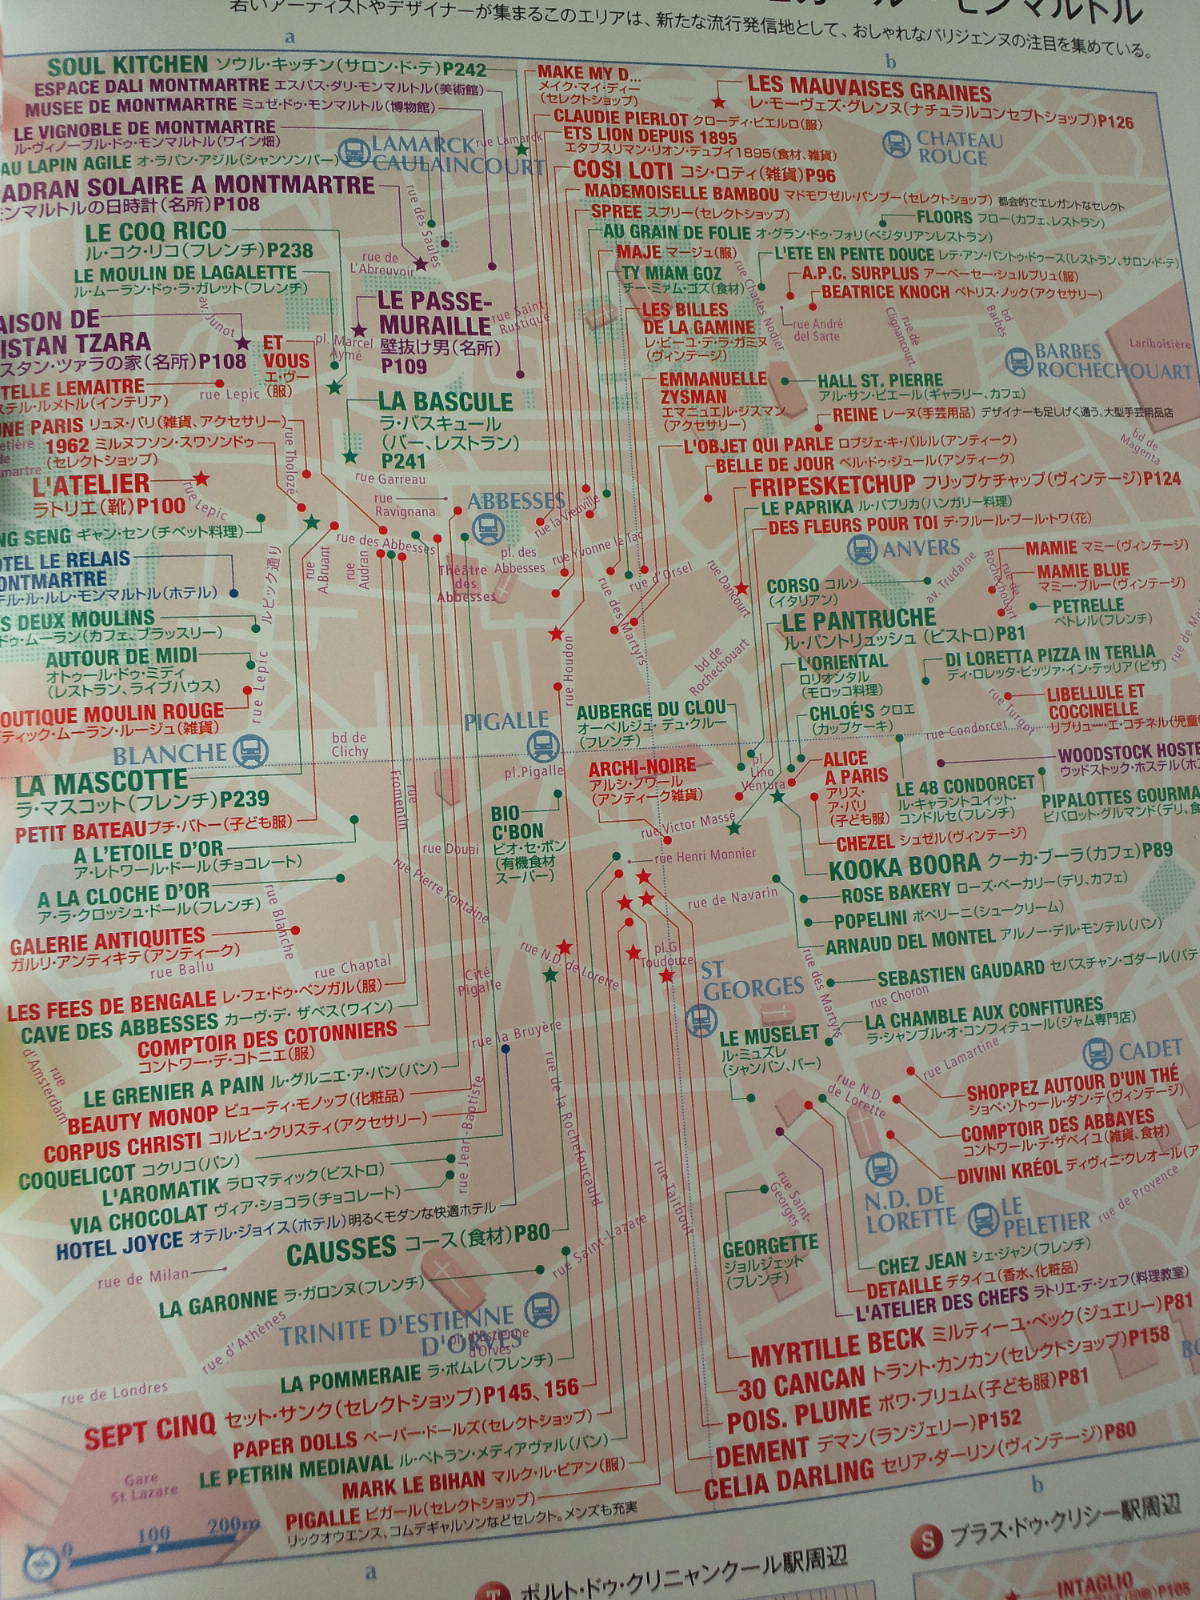 若いアーティストやデザイナーが集まるこのエリアは、新たな流行発信地として、おしゃれなパリジェンヌの注目を集めている。
a
b
SOUL KITCHEN ソウル・キッチン(サロン・ド・テ)P242
ESPACE DALI MONTMARTRE エスパス・ダリ・モンマルトル(美術館)
MUSEE DE MONTMARTRE ミュゼ・ドゥ・モンマルトル(博物館)
LE VIGNOBLE DE MONTMARTRE
ル・ヴィノーブル・ドゥ・モンマルトル(ワイン畑)
AU LAPIN AGILE オ・ラパン・アジル(シャンソンバー)
ADRAN SOLAIRE A MONTMARTRE
ンマルトルの日時計(名所)P108
LE COQ RICO
ル・コク・リコ(フレンチ)P238
LE MOULIN DE LAGALETTE
ル・ムーラン・ドゥ・ラ・ガレット(フレンチ)
AISON DE
ISTAN TZARA
スタン・ツァラの家(名所)P108
ET
VOUS
エ・ヴー
(服)
LE PASSE-
MURAILLE
壁抜け男(名所)
P109
TELLE LEMAITRE
ステル・ルメトル(インテリア)
NE PARIS リュヌ・パリ(雑貨、アクセサリー)
1962 ミルヌフソン・スワソンドゥ
(セレクトショップ)
L'ATELIER
ラトリエ(靴)P100
LA BASCULE
ラ・バスキュール
(バー、レストラン)
P241
NG SENG ギャン・セン(チベット料理)
OTEL LE RELAIS
ONTMARTRE
テル・ル・ルレ・モンマルトル(ホテル)
S DEUX MOULINS
ドゥ・ムーラン(カフェ、ブラッスリー)
AUTOUR DE MIDI
オトゥール・ドゥ・ミディ
(レストラン、ライブハウス)
OUTIQUE MOULIN ROUGE
ティック・ムーラン・ルージュ(雑貨)
BLANCHE
LA MASCOTTE
ラ・マスコット(フレンチ)P239
PETIT BATEAU プチ・バトー(子ども服)
A L'ETOILE D'OR
ア・レトワール・ドール(チョコレート)
A LA CLOCHE D'OR
ア・ラ・クロッシュ・ドール(フレンチ)
GALERIE ANTIQUITES
ガルリ・アンティキテ(アンティーク)
LES FEES DE BENGALE レ・フェ・ドゥ・ベンガル(服)
CAVE DES ABBESSES カーヴ・デ・ザベス(ワイン)
COMPTOIR DES COTONNIERS
コントワー・デ・コトニエ(服)
LE GRENIER A PAIN ル・グルニエ・ア・パン(パン)
BEAUTY MONOP ビューティ・モノップ(化粧品)
CORPUS CHRISTI コルピュ・クリスティ(アクセサリー)
COQUELICOT コクリコ(パン)
L'AROMATIK ラロマティック(ビストロ)
VIA CHOCOLAT ヴィア・ショコラ(チョコレート)
HOTEL JOYCE オテル・ジョイス(ホテル)明るくモダンな快適ホテル
CAUSSES コース(食材)P80
LA GARONNE ラ・ガロンヌ(フレンチ)
TRINITE D'ESTIENNE
D'ORVES
LA POMMERAIE ラ・ポムレ(フレンチ)
SEPT CINQ セット・サンク(セレクトショップ)P145、156
PAPER DOLLS ペーパー・ドールズ(セレクトショップ)
LE PETRIN MEDIAVAL ル・ペトラン・メディアヴァル(パン)
MARK LE BIHAN マルク・ル・ビアン(服)
PIGALLE ピガール(セレクトショップ)
リックオウエンス、コムデギャルソンなどセレクト。メンズも充実
MAKE MY D...
メイク・マイ・ディー
(セレクトショップ)
LES MAUVAISES GRAINES
レ・モーヴェズ・グレンヌ(ナチュラルコンセプトショップ)P126
CLAUDIE PIERLOT クローディ・ピエルロ(服)
ETS LION DEPUIS 1895
エタブスリマン・リオン・デュプイ1895(食材、雑貨)
COSI LOTI コシ・ロティ(雑貨)P96
MADEMOISELLE BAMBOU マドモワゼル・バンブー(セレクトショップ) 都会的でエレガントなセレクト
SPREE スプリー(セレクトショップ)
FLOORS フロー(カフェ、レストラン)
AU GRAIN DE FOLIE オ・グラン・ドゥ・フォリ(ベジタリアンレストラン)
MAJE マージュ(服)
L'ETE EN PENTE DOUCE レテ・アン・パントゥ・ドゥース(レストラン、サロン・ド・テ)
TY MIAM GOZ
チー・ミァム・ゴズ(食材)
A.P.C. SURPLUS アーペーセー・シュルプリュ(服)
BEATRICE KNOCH ベトリス・ノック(アクセサリー)
LES BILLES
DE LA GAMINE
レ・ビーユ・デ・ラ・ガミヌ
(ヴィンテージ)
EMMANUELLE
ZYSMAN
エマニュエル・ジスマン
(アクセサリー)
HALL ST. PIERRE
アル・サン・ピエール(ギャラリー、カフェ)
REINE レーヌ(手芸用品) デザイナーも足しげく通う、大型手芸用品店
L'OBJET QUI PARLE ロブジェ・キ・パルル(アンティーク)
BELLE DE JOUR ベル・ドゥ・ジュール(アンティーク)
FRIPESKETCHUP フリップケチャップ(ヴィンテージ)P124
LE PAPRIKA ル・パプリカ(ハンガリー料理)
DES FLEURS POUR TOI デ・フルール・プール・トワ(花)
ANVERS
MAMIE マミー(ヴィンテージ)
MAMIE BLUE
マミー・ブルー(ヴィンテージ)
CORSO コルソ
(イタリアン)
PETRELLE
ペトレル(フレンチ)
LE PANTRUCHE
ル・パントリュッシュ(ビストロ)P81
L'ORIENTAL
ロリオンタル
(モロッコ料理)
DI LORETTA PIZZA IN TERLIA
ディ・ロレッタ・ピッツァ・イン・テッリア(ピザ)
LIBELLULE ET
COCCINELLE
AUBERGE DU CLOU
オーベルジュ・デュ・クルー
(フレンチ)
CHLOÉ'S クロエ
(カップケーキ)
ARCHI-NOIRE
アルシ・ノワール
(アンティーク雑貨)
ALICE
A PARIS
アリス・
ア・パリ
(子ども服)
WOODSTOCK HOSTE
ウッドストック・ホステル(ホ
LE 48 CONDORCET
ル・キャラントユイット・
コンドルセ(フレンチ)
PIPALOTTES GOURMA
ピパロット・グルマンド(デリ、食
BIO
C'BON
ビオ・セ・ボン
(有機食材
スーパー)
CHEZEL シュゼル(ヴィンテージ)
KOOKA BOORA クーカ・ブーラ(カフェ)P89
ROSE BAKERY ローズ・ベーカリー(デリ、カフェ)
POPELINI ポペリーニ(シュークリーム)
ARNAUD DEL MONTEL アルノー・デル・モンテル(パン)
SEBASTIEN GAUDARD セバスチャン・ゴダール(パテ
LA CHAMBLE AUX CONFITURES
ラ・シャンブル・オ・コンフィテュール(ジャム専門店)
ST
GEORGES
LE MUSELET
ル・ミュズレ
(シャンパン、バー)
CADET
SHOPPEZ AUTOUR D'UN THÉ
ショペ・ゾトゥール・ダン・テ(ヴィンテージ)
COMPTOIR DES ABBAYES
コントワール・デ・ザベイユ(雑貨、食材)
DIVINI KRÉOL ディヴィニ・クレオール(ア
N.D. DE
LORETTE
LE
PELETIER
GEORGETTE
ジョルジェット
(フレンチ)
CHEZ JEAN シェ・ジャン(フレンチ)
DETAILLE デタイユ(香水、化粧品)
L'ATELIER DES CHEFS ラトリエ・デ・シェフ(料理教室)
MYRTILLE BECK ミルティーユ・ベック(ジュエリー)P81
30 CANCAN トラント・カンカン(セレクトショップ)P158
POIS. PLUME ポワ・プリュム(子ども服)P81
DEMENT デマン(ランジェリー)P152
CELIA DARLING セリア・ダーリン(ヴィンテージ)P80
LAMARCK
CAULAINCOURT
CHATEAU
ROUGE
BARBES
ROCHECHOUART
Lariboisière
ABBESSES
PIGALLE
rue Lamarck
rue des Saules
rue de
L'Abreuvoir
rue Saint
Rustique
av. Junot
pl. Marcel
Aymé
rue Lepic
rue Tholozé
rue Lepic
rue Garreau
rue
Ravignana
rue des Abbesses
rue
A.Bruant
rue
Audran
ルピック通り
rue Lepic
Théâtre
des
Abbesses
pl. des
Abbesses
rue la Vieuville
rue Yvonne le Tac
rue d'Orsel
rue des Martyrs
rue Houdon
rue Dancourt
rue Charles Nodier
rue André
del Sarte
rue de
Clignancourt
bd
Barbès
bd de
Magenta
av. Trudaine
rue
Rochechouart
bd de
Rochechouart
rue Turgot
rue Condorcet
bd de
Clichy
pl.Pigalle
pl.
Lino
Ventura
rue Victor Massé
rue Henri Monnier
rue de Navarin
rue
Fromentin
rue Douai
rue Pierre Fontaine
rue Blanche
rue Ballu
rue Chaptal
Cité
Pigalle
rue N.D. de Lorette
pl.G
Toudouze
rue la Bruyère
rue Jean-Baptiste
rue de la Rochefoucauld
rue Taitbout
rue des Martyrs
rue Choron
rue Lamartine
rue N.D.
de Lorette
rue Saint-
Georges
rue de Provence
rue Saint-Lazare
rue
d'Amsterdam
rue de Milan
rue d'Athènes
rue de Londres
Gare
St Lazare
pl. d'Estienne
d'Orves
0 100 200m
a
b
ポルト・ドゥ・クリニャンクール駅周辺
S プラス・ドゥ・クリシー駅周辺
INTAGLIO